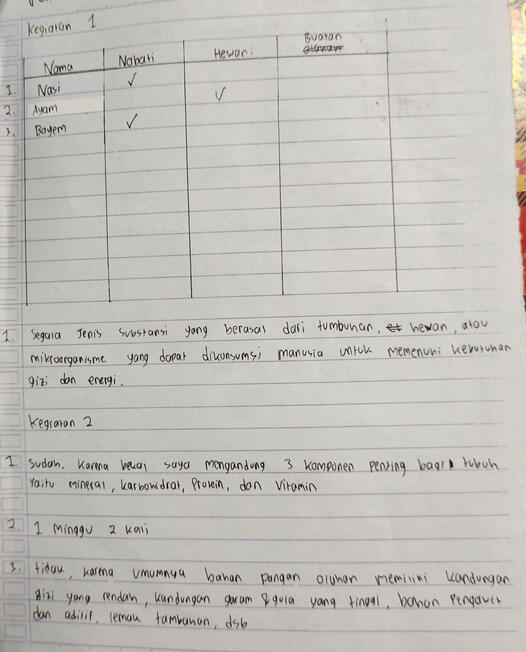 Kegiatan 1
Nama Nabati Hewani Buatan
1. Nasi ✓
2. Ayam ✓
3. Bayem ✓
1. Segala Jenis Substansi yang berasal dari tumbuhan, hewan, atau
mikroorganisme yang dapat dikonsumsi manusia untuk memenuhi kebutuhan
gizi dan energi.
Kegiatan 2
1. Sudah, karena bekal saya mengandung 3 komponen penting bagi tubuh
Yaitu mineral, karbohidrat, Protein, dan Vitamin
2. 1 Minggu 2 kali
3. tidak, karena umumnya bahan pangan olahan memiliki kandungan
gizi yang rendah, kandungan garam & gula yang tinggi, bahan Pengawet
dan aditif, lemak tambahan, dsb